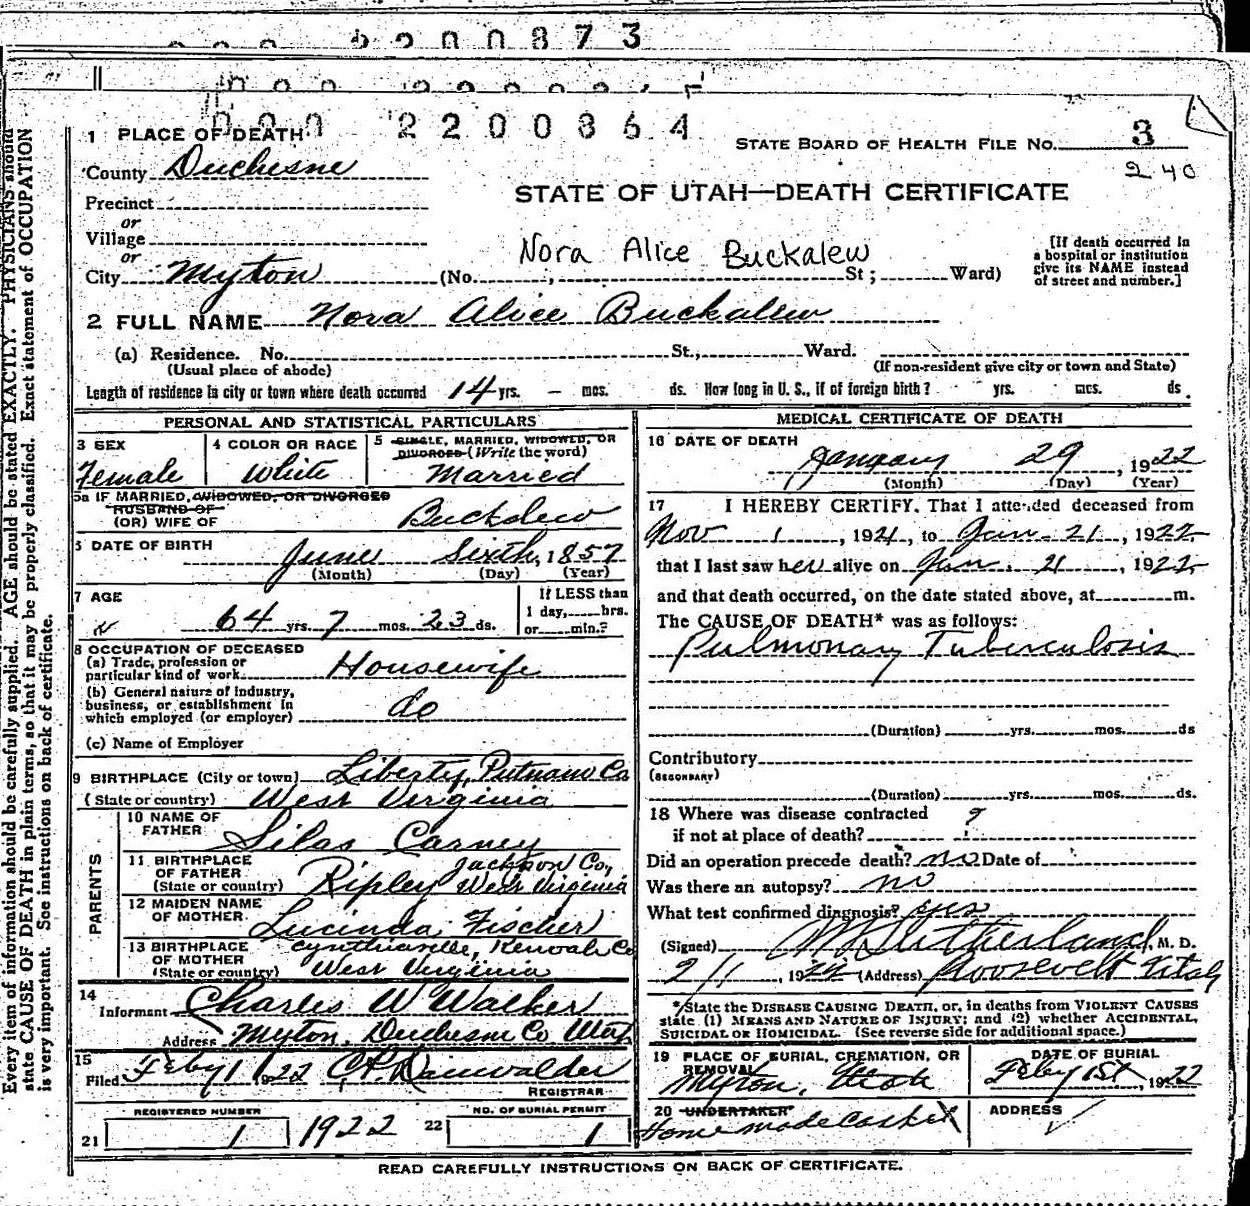 2200873
000 2200864
1 PLACE OF DEATH
STATE BOARD OF HEALTH FILE No. 3
240
County Duchesne
STATE OF UTAH—DEATH CERTIFICATE
Precinct
or
Village
or
City Myton (No. , St ; Ward)
Nora Alice Buckalew
[If death occurred in
a hospital or institution
give its NAME instead
of street and number.]
2 FULL NAME Nora Alice Buckalew
(a) Residence. No. St., Ward.
(Usual place of abode) (If non-resident give city or town and State)
Length of residence in city or town where death occurred 14 yrs. — mos. ds. How long in U. S., if of foreign birth? yrs. mos. ds.
PERSONAL AND STATISTICAL PARTICULARS
3 SEX
Female
4 COLOR OR RACE
White
5 SINGLE, MARRIED, WIDOWED, OR
DIVORCED (Write the word)
Married
5a IF MARRIED, WIDOWED, OR DIVORCED
HUSBAND OF
(OR) WIFE OF Buckalew
6 DATE OF BIRTH
June Sixth, 1857
(Month) (Day) (Year)
7 AGE
64 yrs. 7 mos. 23 ds.
If LESS than
1 day, hrs.
or min.?
8 OCCUPATION OF DECEASED
(a) Trade, profession or
particular kind of work Housewife
(b) General nature of industry,
business, or establishment in
which employed (or employer) do
(c) Name of Employer
9 BIRTHPLACE (City or town) Liberty, Putnam Co
(State or country) West Virginia
PARENTS
10 NAME OF
FATHER Silas Carney
11 BIRTHPLACE
OF FATHER
(State or country) Ripley Jackson Co, West Virginia
12 MAIDEN NAME
OF MOTHER Lucinda Fischer
13 BIRTHPLACE
OF MOTHER
(State or country) West Virginia
14
Informant Charles W Walker
Address Myton, Duchesne Co. Utah
15
Filed Feby 1 1922
REGISTRAR
REGISTERED NUMBER
21 1 1922
NO. OF BURIAL PERMIT
22 1
MEDICAL CERTIFICATE OF DEATH
16 DATE OF DEATH
January 29, 1922
(Month) (Day) (Year)
17 I HEREBY CERTIFY, That I attended deceased from
Nov 1, 1921, to Jan 21, 1922
that I last saw her alive on Jan 21, 1922
and that death occurred, on the date stated above, at m.
The CAUSE OF DEATH* was as follows:
Pulmonary Tuberculosis
(Duration) yrs. mos. ds
Contributory
(SECONDARY)
(Duration) yrs. mos. ds.
18 Where was disease contracted
if not at place of death? ?
Did an operation precede death? no Date of
Was there an autopsy? no
What test confirmed diagnosis? yes
(Signed) Sutherland, M. D.
2/1, 1922 (Address) Roosevelt Utah
*State the DISEASE CAUSING DEATH, or, in deaths from VIOLENT CAUSES
state (1) MEANS AND NATURE OF INJURY; and (2) whether ACCIDENTAL,
SUICIDAL OR HOMICIDAL. (See reverse side for additional space.)
19 PLACE OF BURIAL, CREMATION, OR
REMOVAL
Myton, Utah
DATE OF BURIAL
Feby 1st, 1922
20 UNDERTAKER
Home made casket
ADDRESS
READ CAREFULLY INSTRUCTIONS ON BACK OF CERTIFICATE.
Every item of information should be carefully supplied. AGE should be stated EXACTLY. PHYSICIANS should
state CAUSE OF DEATH in plain terms, so that it may be properly classified. Exact statement of OCCUPATION
is very important. See instructions on back of certificate.